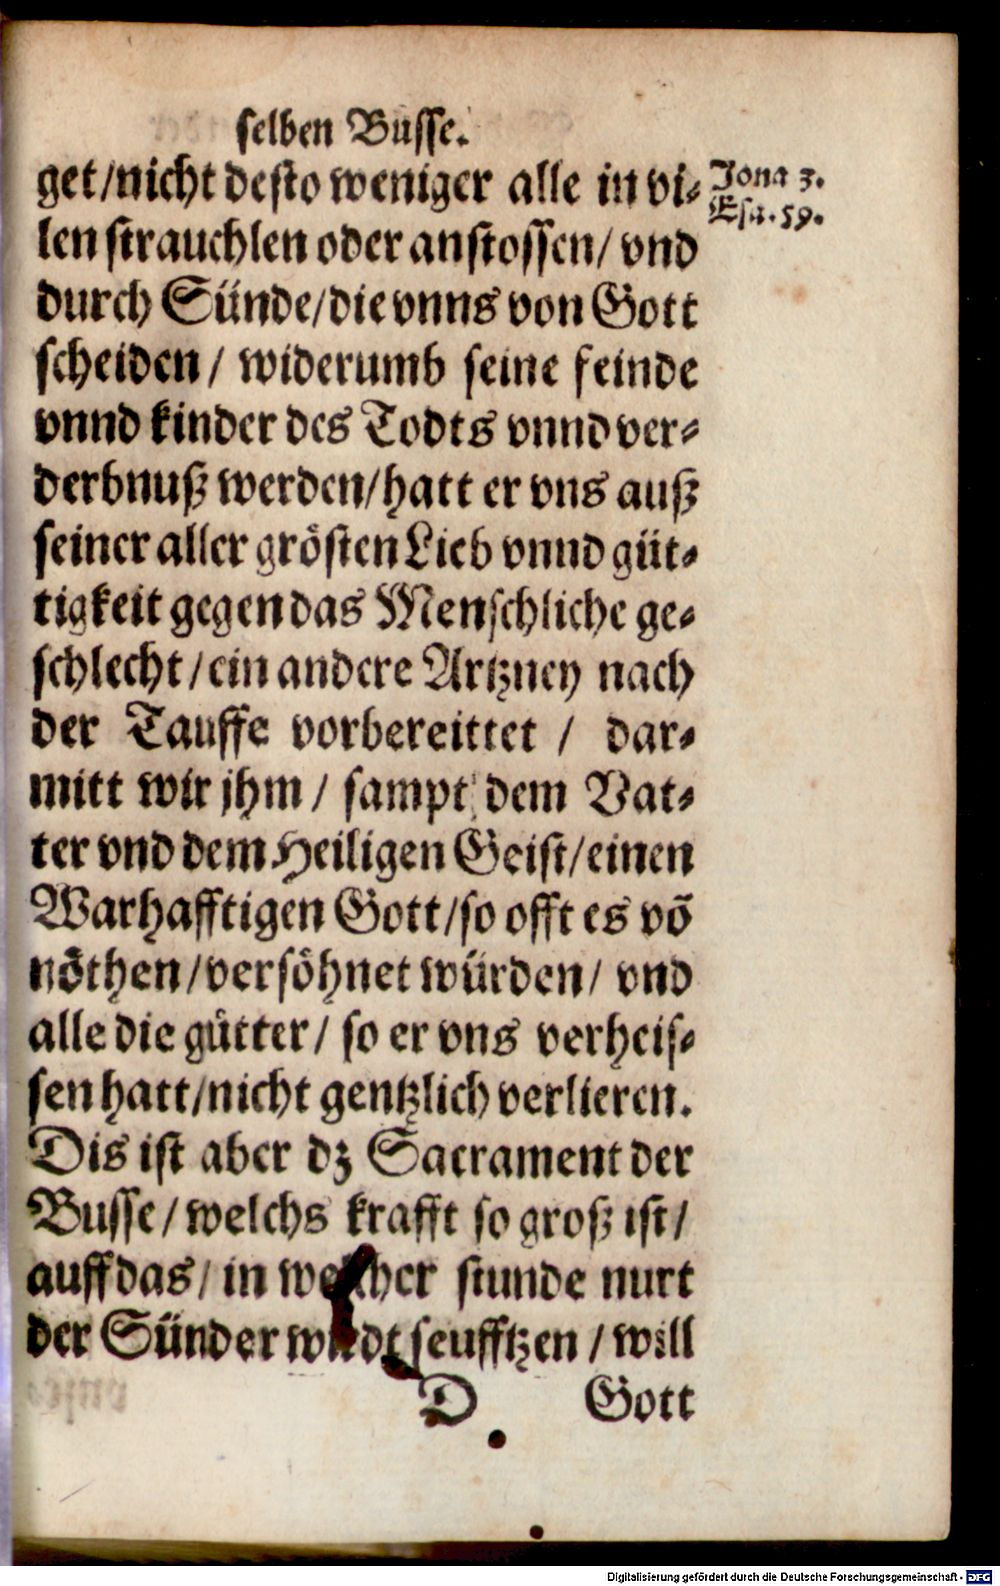 selben Busse.
get/nicht desto weniger alle in vi-
Jona 3.
Esa. 59.
len strauchlen oder anstossen/ vnd
durch Sünde/die vnns von Gott
scheiden/ widerumb seine feinde
vnnd kinder des Todts vnnd ver-
derbnuß werden/hatt er vns auß
seiner aller grösten Lieb vnnd güt-
tigkeit gegen das Menschliche ge-
schlecht/ein andere Artzney nach
der Tauffe vorbereittet / dar-
mitt wir jhm/ sampt dem Vat-
ter vnd dem Heiligen Geist/einen
Warhafftigen Gott/so offt es võ
nöthen/versöhnet würden/ vnd
alle die gütter/ so er vns verheis-
sen hatt/nicht gentzlich verlieren.
Dis ist aber dz Sacrament der
Busse/welchs krafft so groß ist/
auff das/ in welcher stunde nurt
der Sünder wirdt seufftzen/will
D Gott
Digitalisierung gefördert durch die Deutsche Forschungsgemeinschaft - DFG